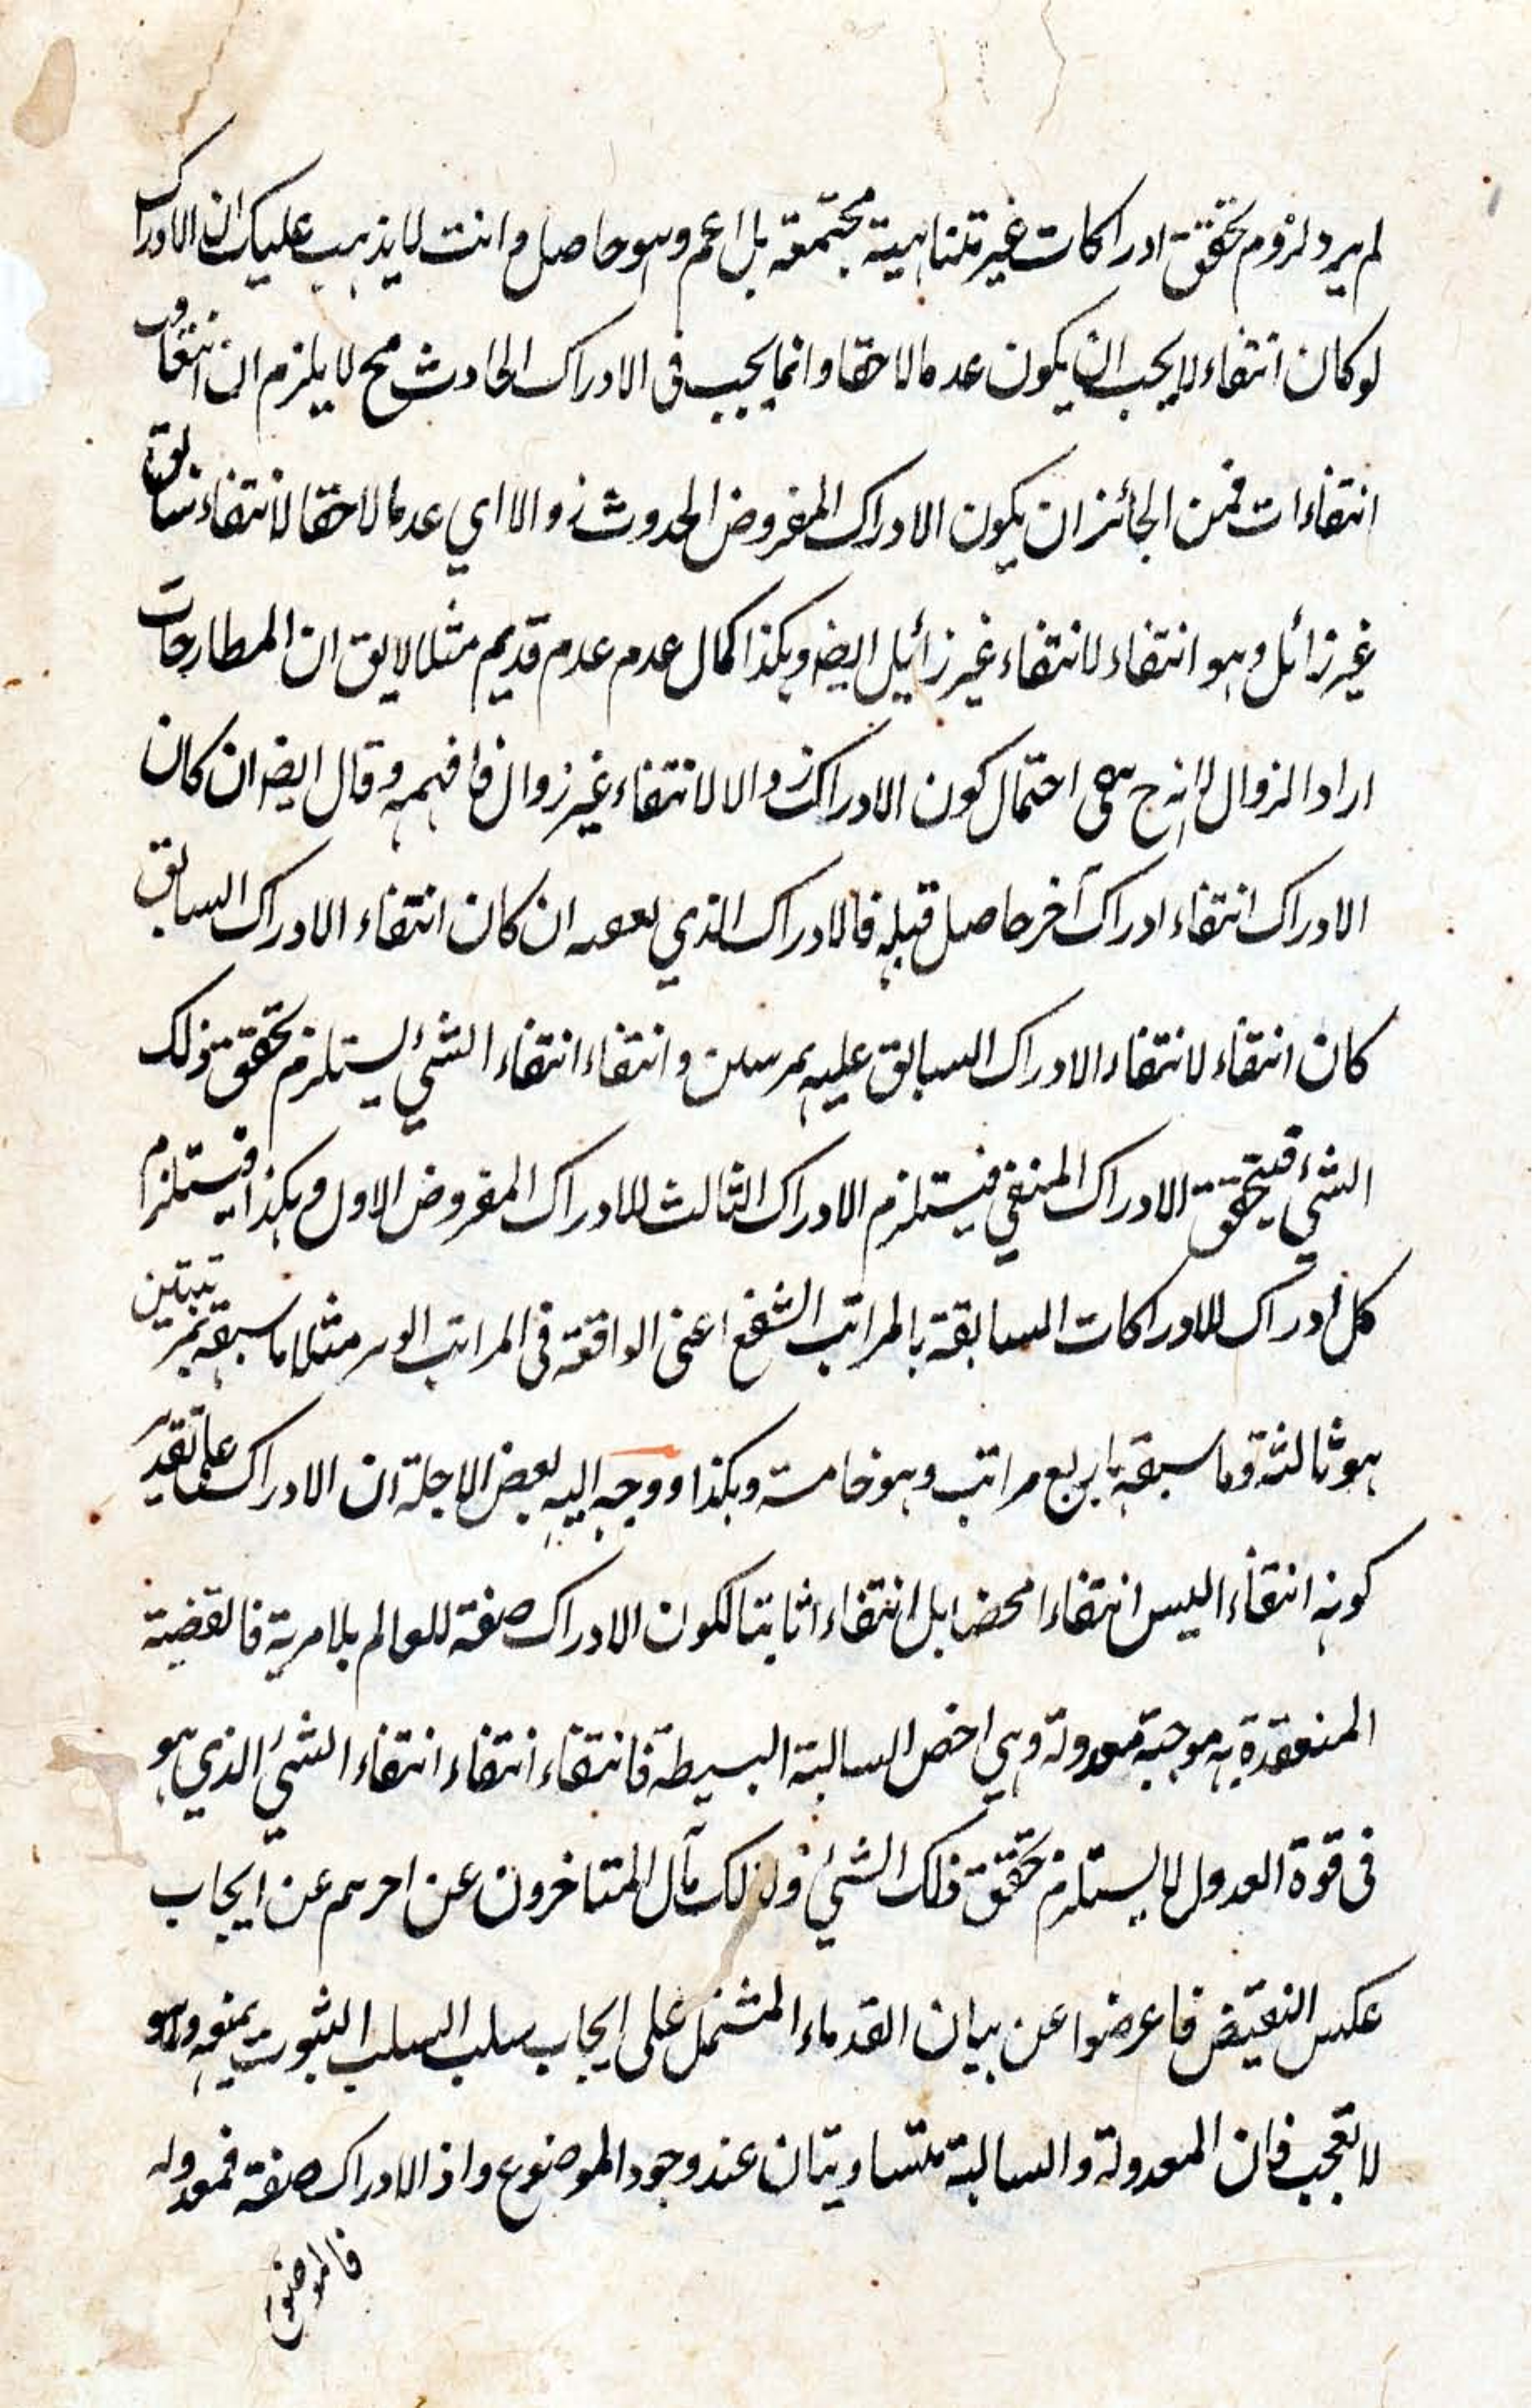 لم يرد لزوم تحقق ادراكات غير متناهية مجتمعة بل اعم وهو حاصل وانت لا يذهب عليك ان الادراك
لو كان انتفاء لا يجب ان يكون عدما لاحقا وانما يجب فى الادراك الحادث فح لا يلزم ان
انتفاءات فمن الجائز ان يكون الادراك المفروض الحدوث زوالا اي عدما لاحقا لانتفاء سابق
غير زائل وهو انتفاء لانتفاء غير زائيل ايضه وهكذا كمال عدم عدم قديم مثلا لايق ان المطارحات
اراد الزوال لانه ح بقى احتمال كون الادراك زوالا لانتفاء غير زوال فافهمه وقال ايضه ان كان
الادراك انتفاء ادراك آخر حاصل قبله فالادراك الذي بعده ان كان انتفاء الادراك السابق
كان انتفاء لانتفاء الادراك السابق عليه بمرتبتين وانتفاء انتفاء الشئ يستلزم تحقق ذلك
الشئ فيتحقق الادراك المنفي فيستلزم الادراك الثالث للادراك المفروض الاول وهكذا فيستلزم
كل ادراك للادراكات السابقة بالمراتب الشفع اعنى الواقعة فى المراتب الوتر مثلا ما سبقه بمرتبتين
هو ثالثة وما سبقه باربع مراتب وهو خامسة وهكذا ووجه اليه بعض الاجلة ان الادراك على تقدير
كونه انتفاء اليس انتفاءا محضا بل انتفاءا ثابتا لكون الادراك صفة للعالم بلا مرية فالقضية
المنعقدة به موجبة معدولة وهي اخص السالبة البسيطة فانتفاء انتفاء انتفاء الشئ الذي هو
فى قوة العدول لا يستلزم تحقق ذلك الشئ ولذلك مآل المتاخرون عن اخرهم عن ايجاب
عكس النقيض فاعرضوا عن بيان القدماء المشتمل على ايجاب سلب السلب الثبوت بمنعه وهو
لا تعجب فان المعدولة والسالبة متساويتان عند وجود الموضوع واذ الادراك صفة فمعدوله
فالموضوع